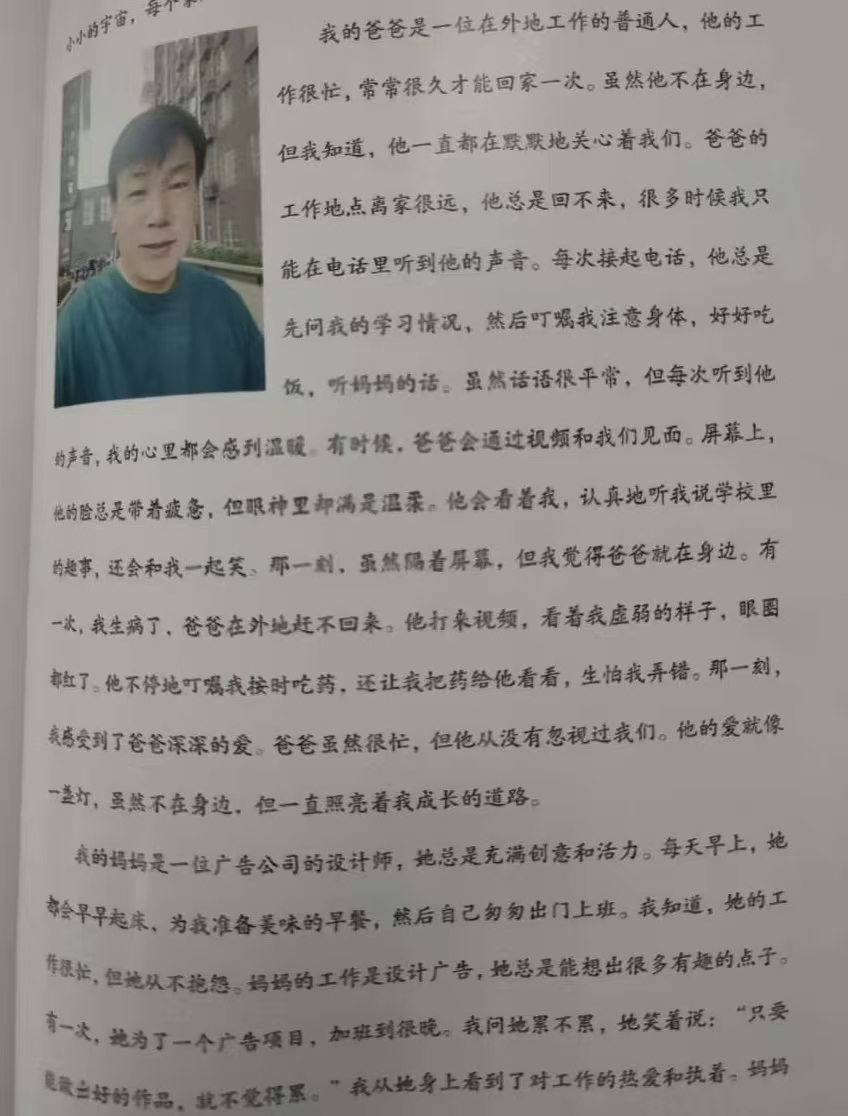 小小的宇宙，每个家
我的爸爸是一位在外地工作的普通人，他的工
作很忙，常常很久才能回家一次。虽然他不在身边，
但我知道，他一直都在默默地关心着我们。爸爸的
工作地点离家很远，他总是回不来，很多时候我只
能在电话里听到他的声音。每次接起电话，他总是
先问我的学习情况，然后叮嘱我注意身体，好好吃
饭，听妈妈的话。虽然话语很平常，但每次听到他
的声音，我的心里都会感到温暖。有时候，爸爸会通过视频和我们见面。屏幕上，
他的脸总是带着疲惫，但眼神里却满是温柔。他会看着我，认真地听我说学校里
的趣事，还会和我一起笑。那一刻，虽然隔着屏幕，但我觉得爸爸就在身边。有
一次，我生病了，爸爸在外地赶不回来。他打来视频，看着我虚弱的样子，眼圈
都红了。他不停地叮嘱我按时吃药，还让我把药给他看看，生怕我弄错。那一刻，
我感受到了爸爸深深的爱。爸爸虽然很忙，但他从没有忽视过我们。他的爱就像
一盏灯，虽然不在身边，但一直照亮着我成长的道路。
我的妈妈是一位广告公司的设计师，她总是充满创意和活力。每天早上，她
都会早早起床，为我准备美味的早餐，然后自己匆匆出门上班。我知道，她的工
作很忙，但她从不抱怨。妈妈的工作是设计广告，她总是能想出很多有趣的点子。
有一次，她为了一个广告项目，加班到很晚。我问她累不累，她笑着说：“只要
能做出好的作品，就不觉得累。”我从她身上看到了对工作的热爱和执着。妈妈